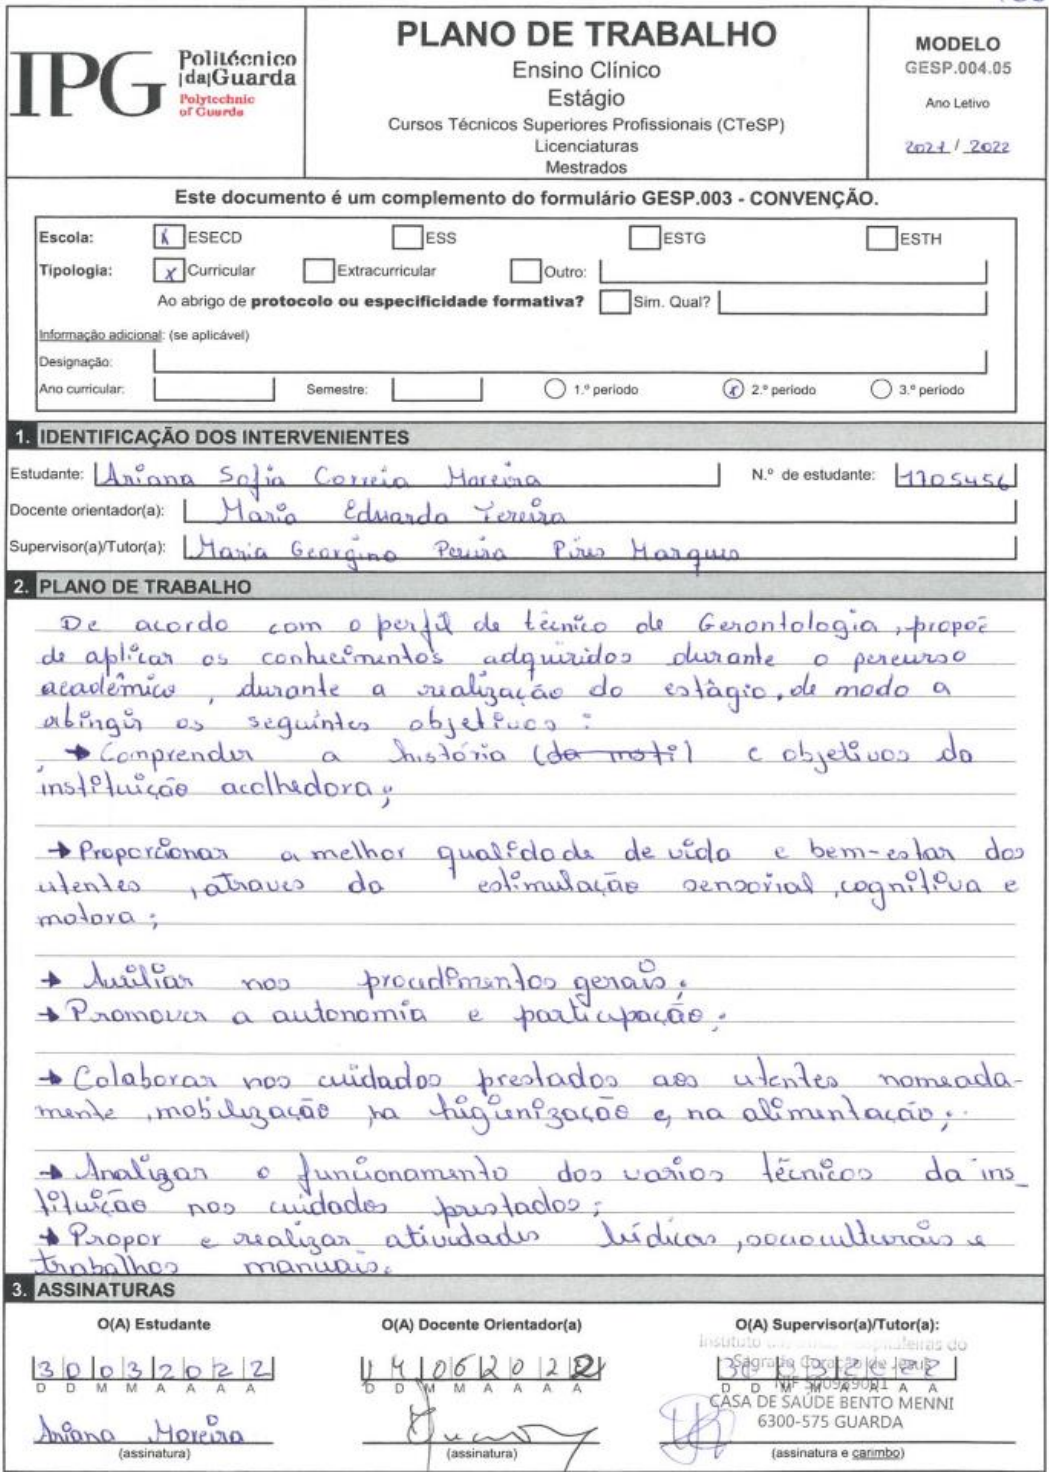 IPG Politécnico |da|Guarda Polytechnic of Guarda
PLANO DE TRABALHO
Ensino Clínico
Estágio
Cursos Técnicos Superiores Profissionais (CTeSP)
Licenciaturas
Mestrados
MODELO
GESP.004.05
Ano Letivo
2021 / 2022
Este documento é um complemento do formulário GESP.003 - CONVENÇÃO.
Escola: x ESECD ESS ESTG ESTH
Tipologia: x Curricular Extracurricular Outro:
Ao abrigo de protocolo ou especificidade formativa? Sim. Qual?
Informação adicional: (se aplicável)
Designação:
Ano curricular: Semestre: 1.º período x 2.º período 3.º período
1. IDENTIFICAÇÃO DOS INTERVENIENTES
Estudante: Ariana Sofia Correia Moreira N.º de estudante: 1705456
Docente orientador(a): Maria Eduarda Ferreira
Supervisor(a)/Tutor(a): Maria Georgina Pereira Pires Marques
2. PLANO DE TRABALHO
De acordo com o perfil de técnico de Gerontologia, propoē
de aplicar os conhecimentos adquiridos durante o percurso
académico, durante a realização do estágio, de modo a
atingir os seguintes objetivos :
→ Comprender a história (da moti) e objetivos da
instituição acolhedora;
→ Proporcionar a melhor qualidade de vida e bem-estar dos
utentes, atraves da estimulação sensorial, cognitiva e
motora;
→ Auxiliar nos procedimentos gerais;
→ Promover a autonomia e participação;
→ Colaborar nos cuidados prestados aos utentes nomeada-
mente, mobilização, na higienização e, na alimentação;
→ Analizar o funcionamento dos varios técnicos da ins_
tituição nos cuidados prestados;
→ Propor e realizar atividades lúdicas, socioculturais e
trabalhos manuais.
3. ASSINATURAS
O(A) Estudante O(A) Docente Orientador(a) O(A) Supervisor(a)/Tutor(a):
Instituto das Irmãs Hospitaleiras do
Sagrado Coração de Jesus
NIF 500989001
CASA DE SAÚDE BENTO MENNI
6300-575 GUARDA
30032022 14062022
D D M M A A A A D D M M A A A A D D M M A A A A
Ariana Moreira
(assinatura) (assinatura) (assinatura e carimbo)